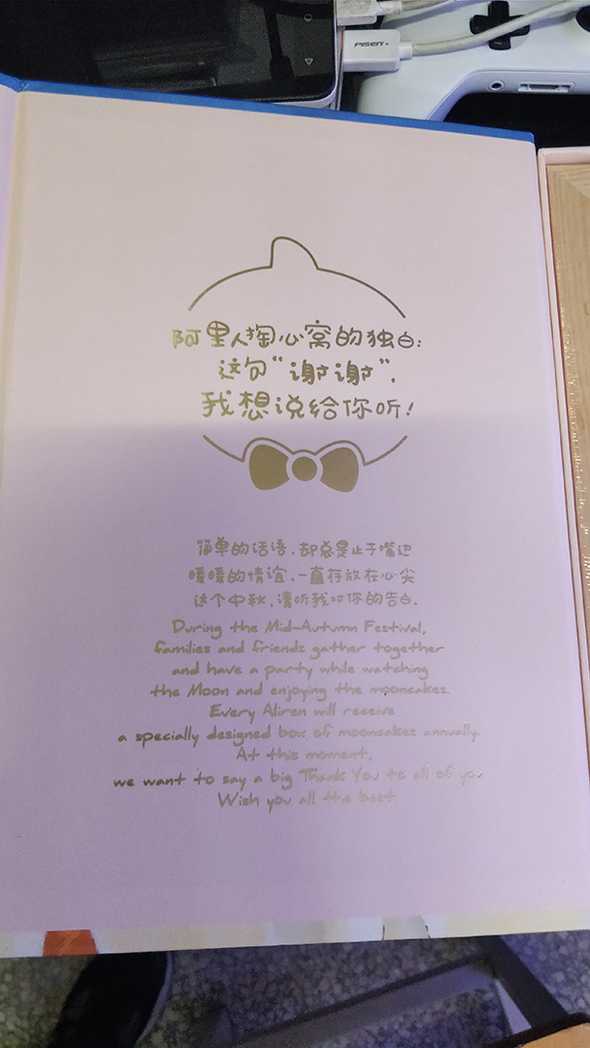 PISEN
阿里人掏心窝的独白:
这句“谢谢”,
我想说给你听!
简单的话语,却总是止于嘴边
暖暖的情谊,一直存放在心尖
这个中秋,请听我对你的告白.
During the Mid-Autumn Festival,
families and friends gather together
and have a party while watching
the Moon and enjoying the mooncakes.
Every Aliren will receive
a specially designed box of mooncakes annually.
At this moment,
we want to say a big Thank You to all of you
Wish you all the best